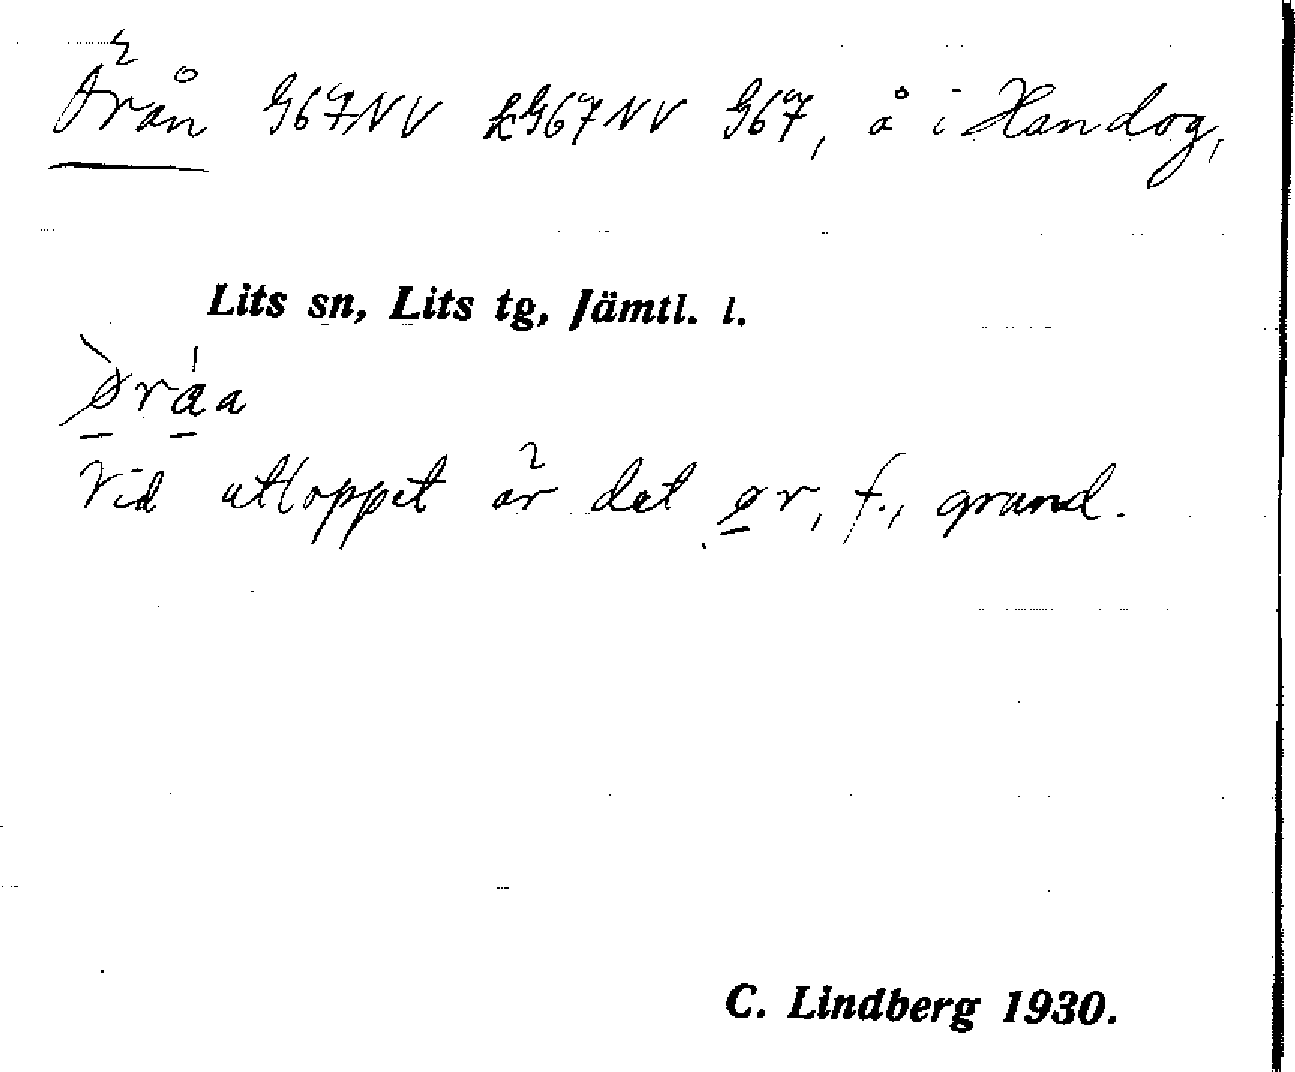 Örån G67NV £G67NV G67, å i Handog,
Lits sn, Lits tg, Jämtl. l.
Òrá̱a
Vid utloppet är det ø̱r, f., grund.
C. Lindberg 1930.